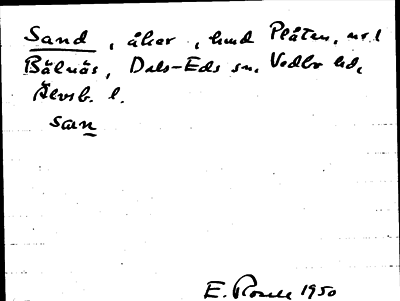 Sand, åker, hmd Plåten, nr 1
Bälnäs, Dals-Eds sn. Vedbo hd,
Älvsb. l.
san
E. 1950